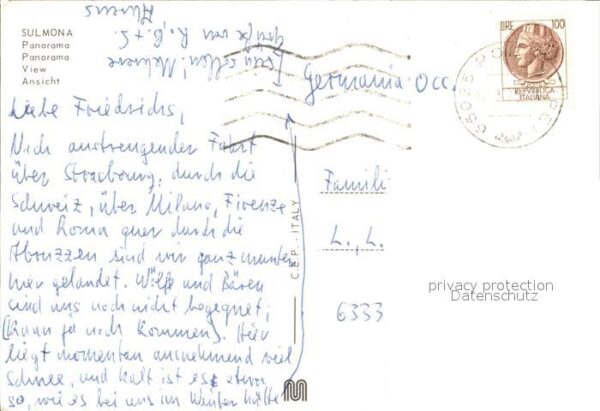 SULMONA
Panorama
Panorama
View
Ansicht
Liebe Friedrichs,
Nach anstrengender Fahrt
über Strasbourg, durch die
Schweiz, über Milano, Firenze
und Roma quer durch die
Abruzzen sind wir ganz munter
hier gelandet. Wölfe und Bären
sind uns noch nicht begegnet;
(kann ja noch kommen). Hier
liegt momentan ausnehmend viel
Schnee, und kalt ist es etwa
so, wie es bei uns im Winter hätte
sein sollen!
Grüße von R, B. + S.
Ahrens
C.E.P. ITALY
M
LIRE 100
REPVBBLICA
ITALIANA
65026
Germania Occ.
Famili
L., L.
6333
privacy protection
Datenschutz